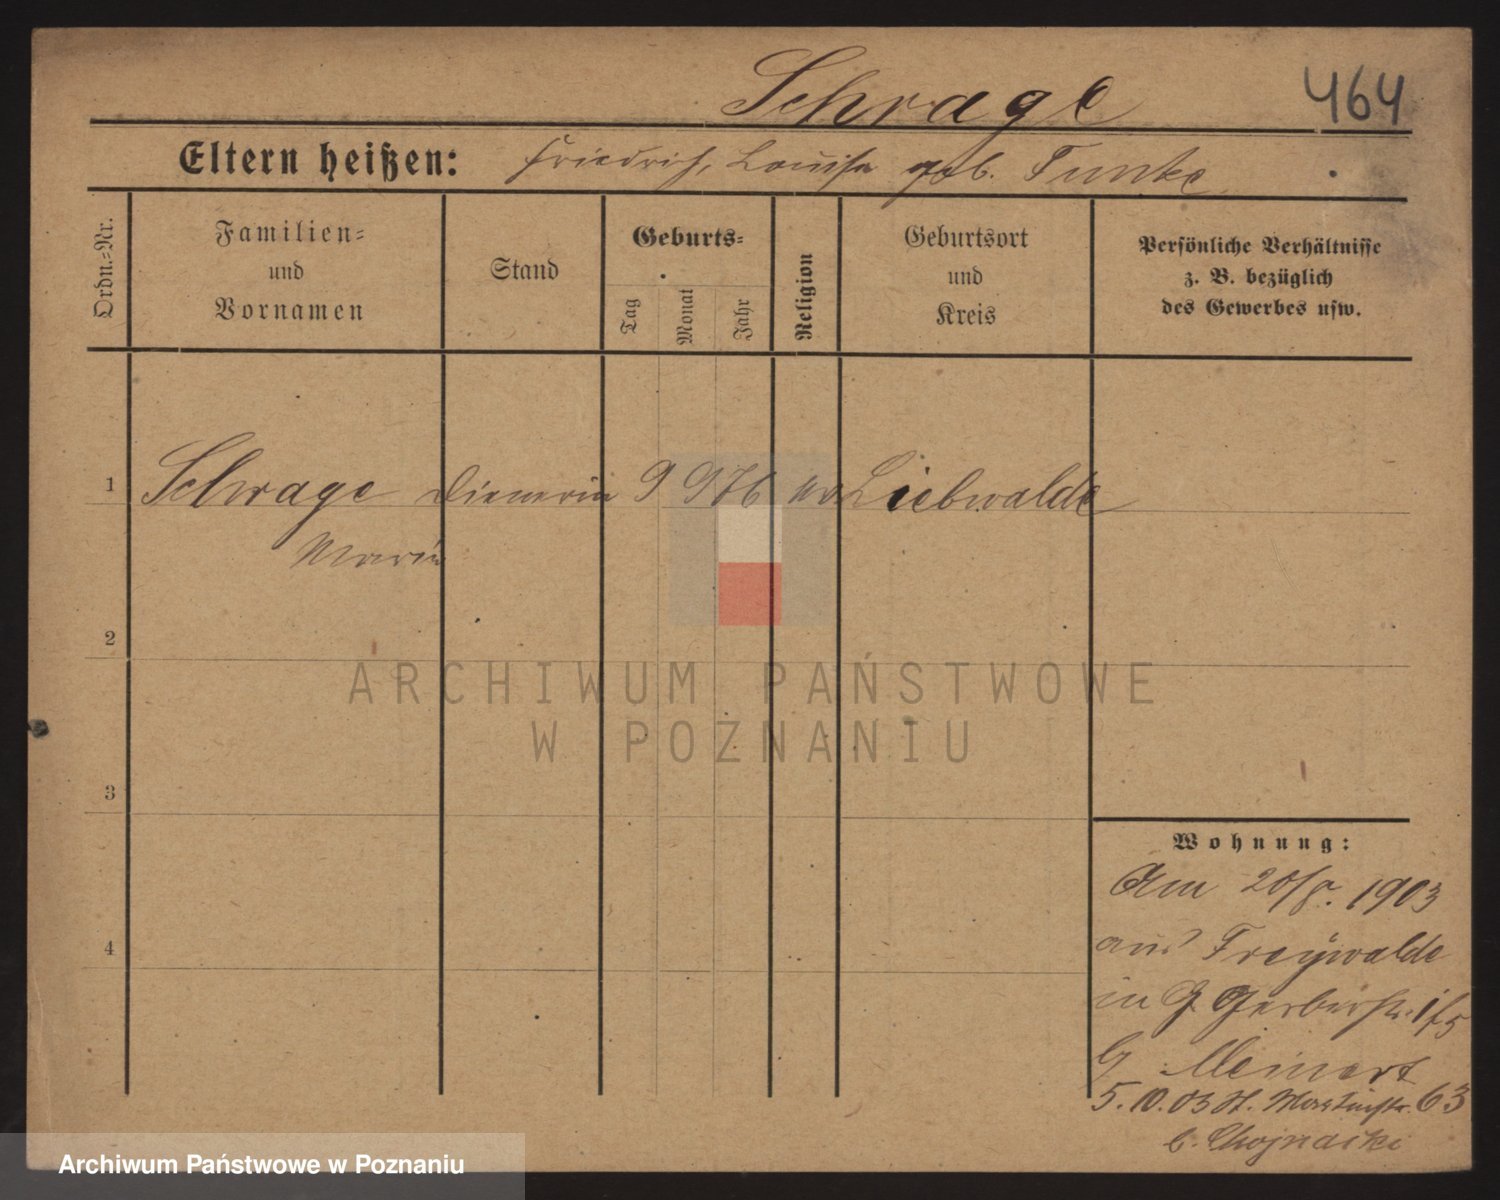 Schrage 464
Eltern heißen: Friedrich, Louise geb. Funke
Ordn.=Nr.
Familien=
und
Vornamen
Stand
Geburts=
Tag
Monat
Jahr
Religion
Geburtsort
und
Kreis
Persönliche Verhältnisse
z. B. bezüglich
des Gewerbes usw.
1 Schrage Dienerin 9 9 76 ev Liebwalde
Marie
2
3
4
Wohnung:
Am 20/8. 1903
aus Freywalde
in G Gerberstr. 1/5
b Meinert
5. 10. 03 St. Martinstr. 63
b. Chojnacki
ARCHIWUM PAŃSTWOWE
W POZNANIU
Archiwum Państwowe w Poznaniu